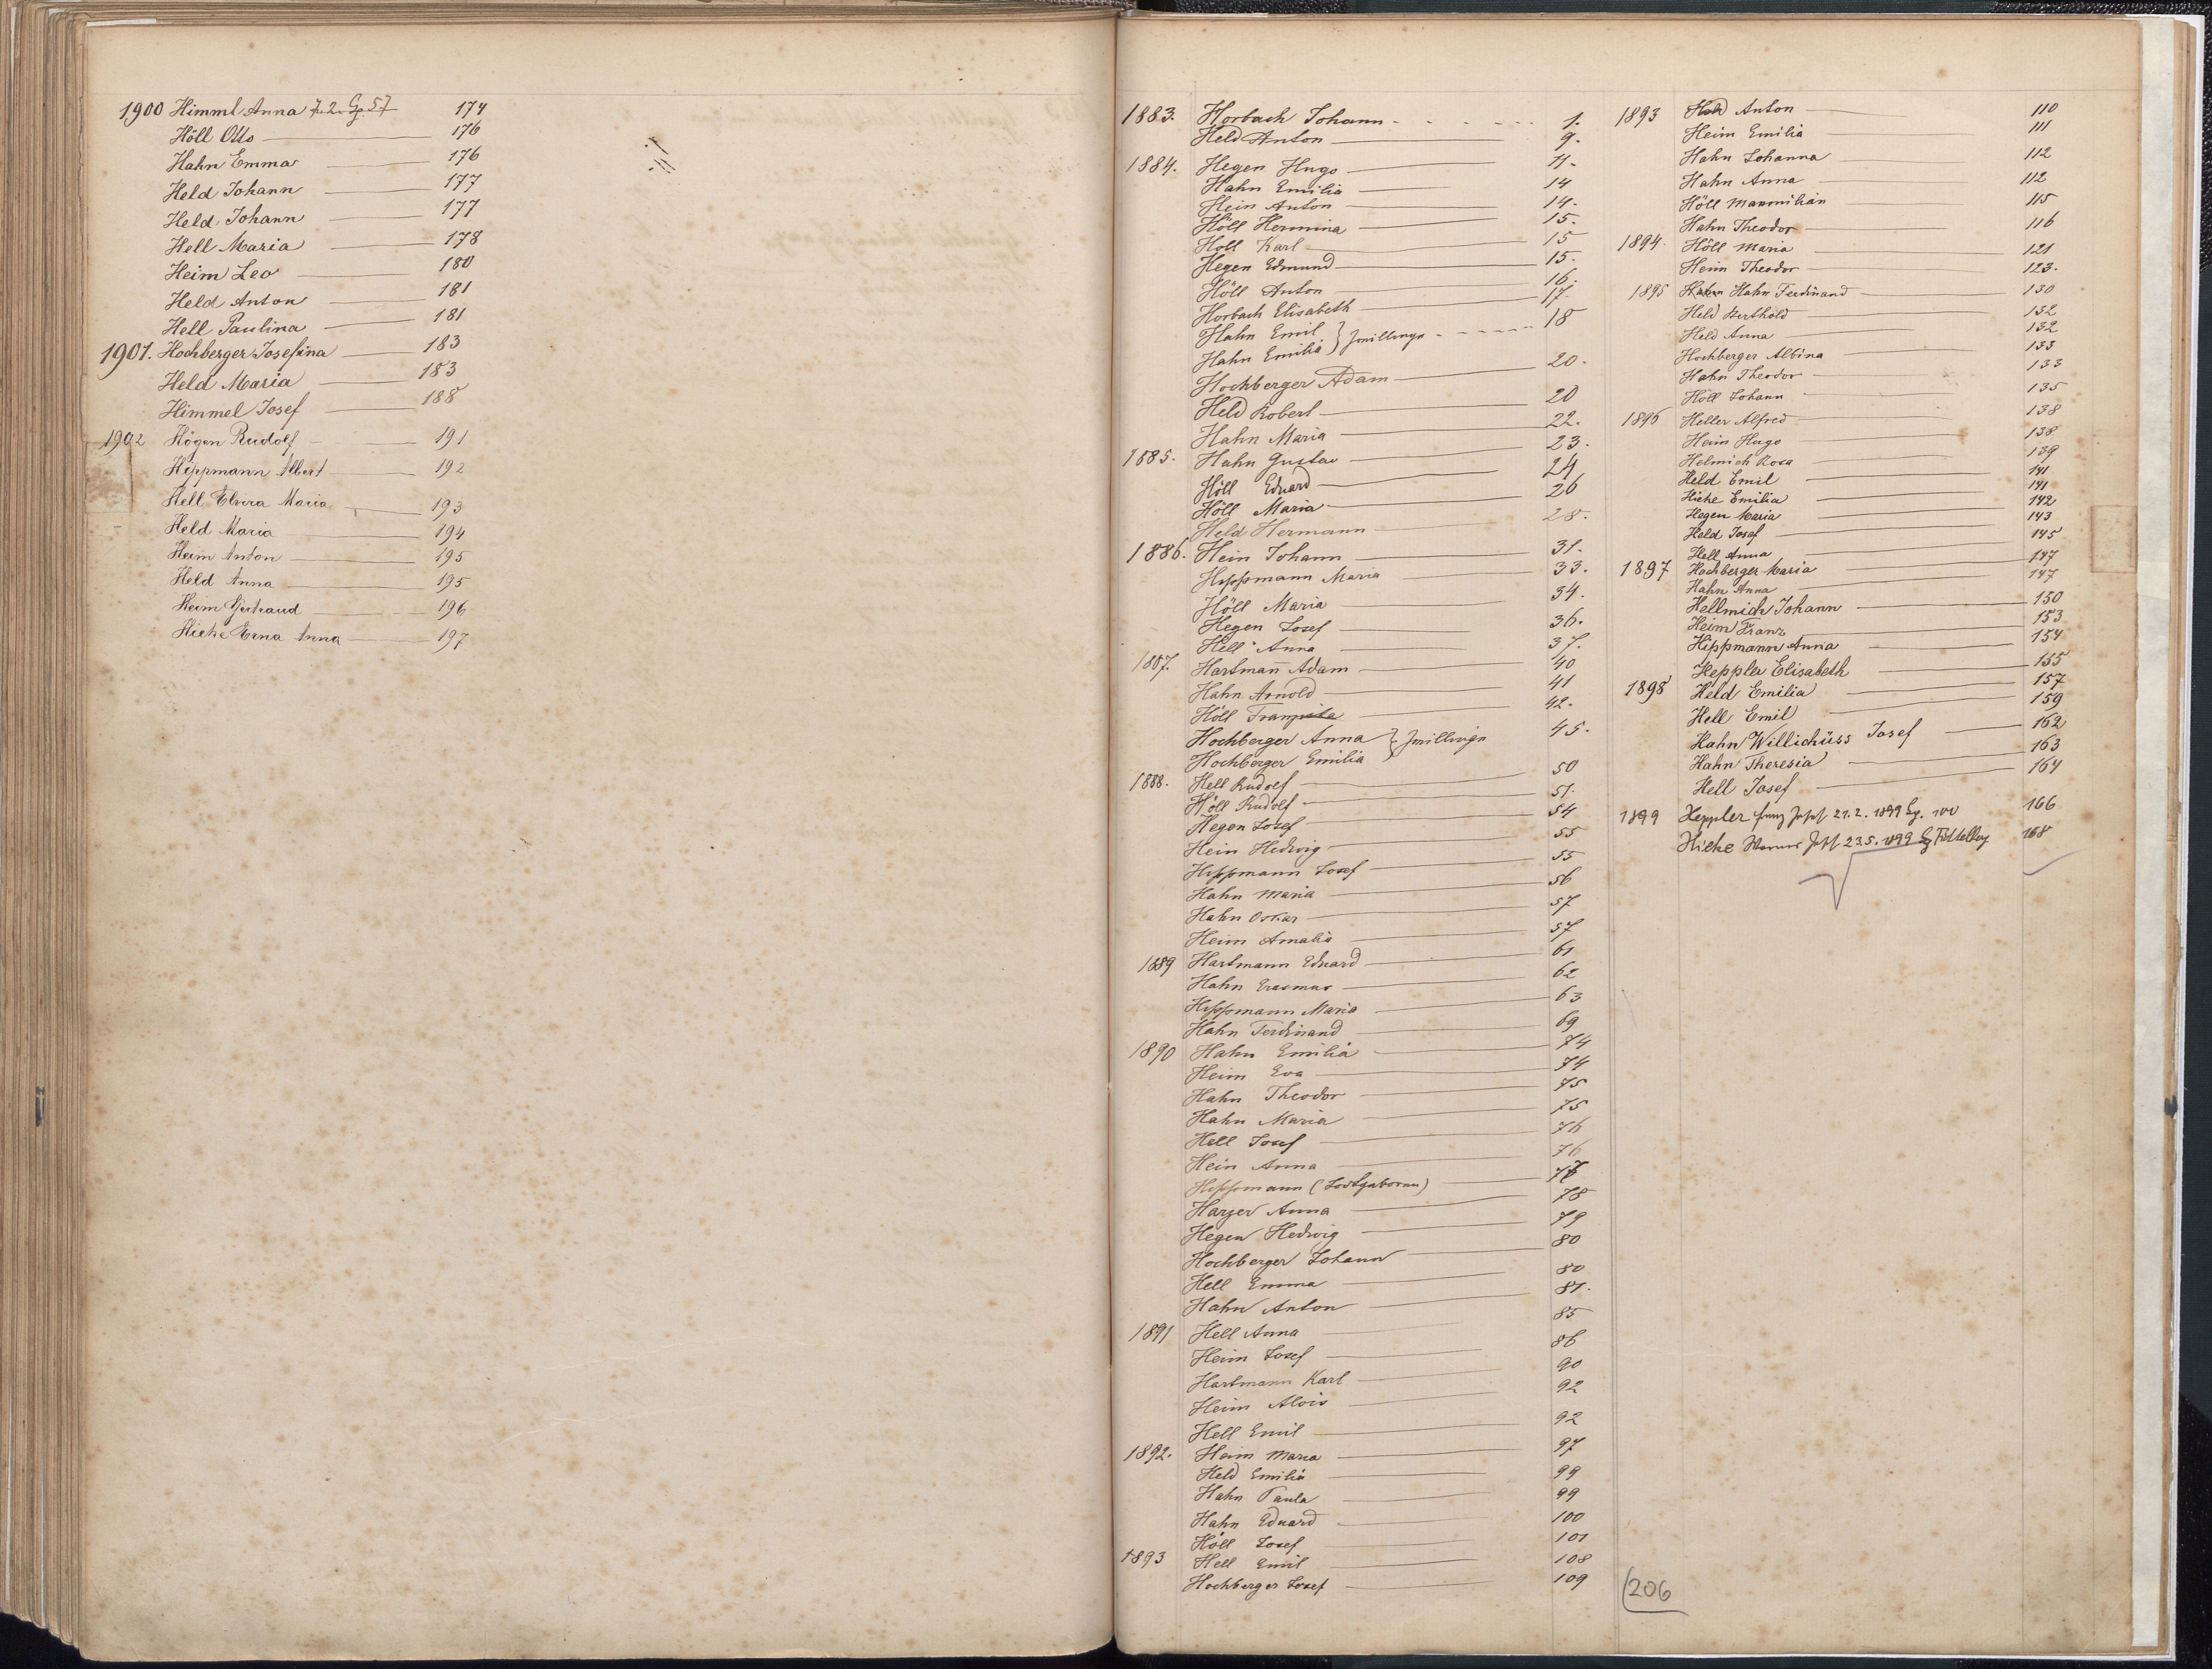 1900 Himml Anna 7. 2. Gg. 57 174
Höll Otto 176
Hahn Emma 176
Held Johann 177
Held Johann 177
Hell Maria 178
Heim Leo 180
Held Anton 181
Hell Paulina 181
1901. Hochberger Josefina 183
Held Maria 183
Himmel Josef 188
1902 Högen Rudolf 191
Hippmann Albert 192
Hell Elvira Maria 193
Held Maria 194
Heim Anton 195
Held Anna 195
Heim Gertraud 196
Hieke Erna Anna 197
1883. Horbach Johann 1.
Held Anton 9.
1884. Hegen Hugo 11.
Hahn Emilia 14
Hein Anton 14.
Höll Hermina 15.
Holl Karl 15
Hegen Edmund 15.
Höll Anton 16.
Horbach Elisabeth 17.
Hahn Emil } Zwillinge 18
Hahn Emilia
Hochberger Adam 20.
Held Robert 20
Hahn Maria 22.
1885. Hahn Gustav 23.
Höll Eduard 24
Höll Maria 26
Held Hermann 28.
1886. Hein Johann 31.
Hippmann Maria 33.
Höll Maria 34.
Hegen Josef 36.
Hell Anna 37.
1887. Hartmann Adam 40
Hahn Arnold 41
Höll 42.
Hochberger Anna } Zwillinge 45.
Hochberger Emilia
1888. Hell Rudolf 50
Höll Rudolf 51.
Hegen Josef 54
Hein Hedwig 55
Hippmann Josef 55
Hahn Maria 56
Hahn Oskar 57
Heim Amalia 57
1889 Hartmann Eduard 61
Hahn Erasmus 62
Hippmann Maria 63
Hahn Ferdinand 69
1890 Hahn Emilia 74
Heim Eva 74
Hahn Theodor 75
Hahn Maria 75
Hell Josef 76
Hein Anna 76
Hippmann (Todtgeboren) 77
Harzer Anna 78
Hegen Hedwig 79
Hochberger Johann 80
Hell Emma 80
Hahn Anton 81.
1891 Hell Anna 85
Heim Josef 86
Hartmann Karl 90
Heim Alois 92
Hell Emil 92
1892. Heim Maria 97
Held Emilia 99
Hahn Paula 99
Hahn Eduard 100
Höll Josef 101
1893 Hell Emil 108
Hochberger Josef 109
1893 Held Anton 110
Heim Emilia 111
Hahn Johanna 112
Hahn Anna 112
Höll Maxmilian 115
Hahn Theodor 116
1894. Höll Maria 121
Heim Theodor 123.
1895 Hahn Ferdinand 130
Held Berthold 132
Held Anna 132
Hochberger Albina 133
Hahn Theodor 133
Höll Johann 135
1896 Heller Alfred 138
Heim Hugo 138
Helmich Rosa 139
Held Emil 141
Hieke Emilia 141
Hegen Maria 142
Held Josef 143
Hell Anna 145
1897 Hochberger Maria 147
Hahn Anna 147
Hellmich Johann 150
Heim Franz 153
Hippmann Anna 154
Heppler Elisabeth 155
1898 Held Emilia 157
Hell Emil 159
Hahn Josef 162
Hahn Theresia 163
Hell Josef 164
1899 Heppler Josef 21. 2. 1899 Gg. 100 166
Hieke Josef 23.5.1899 168
206